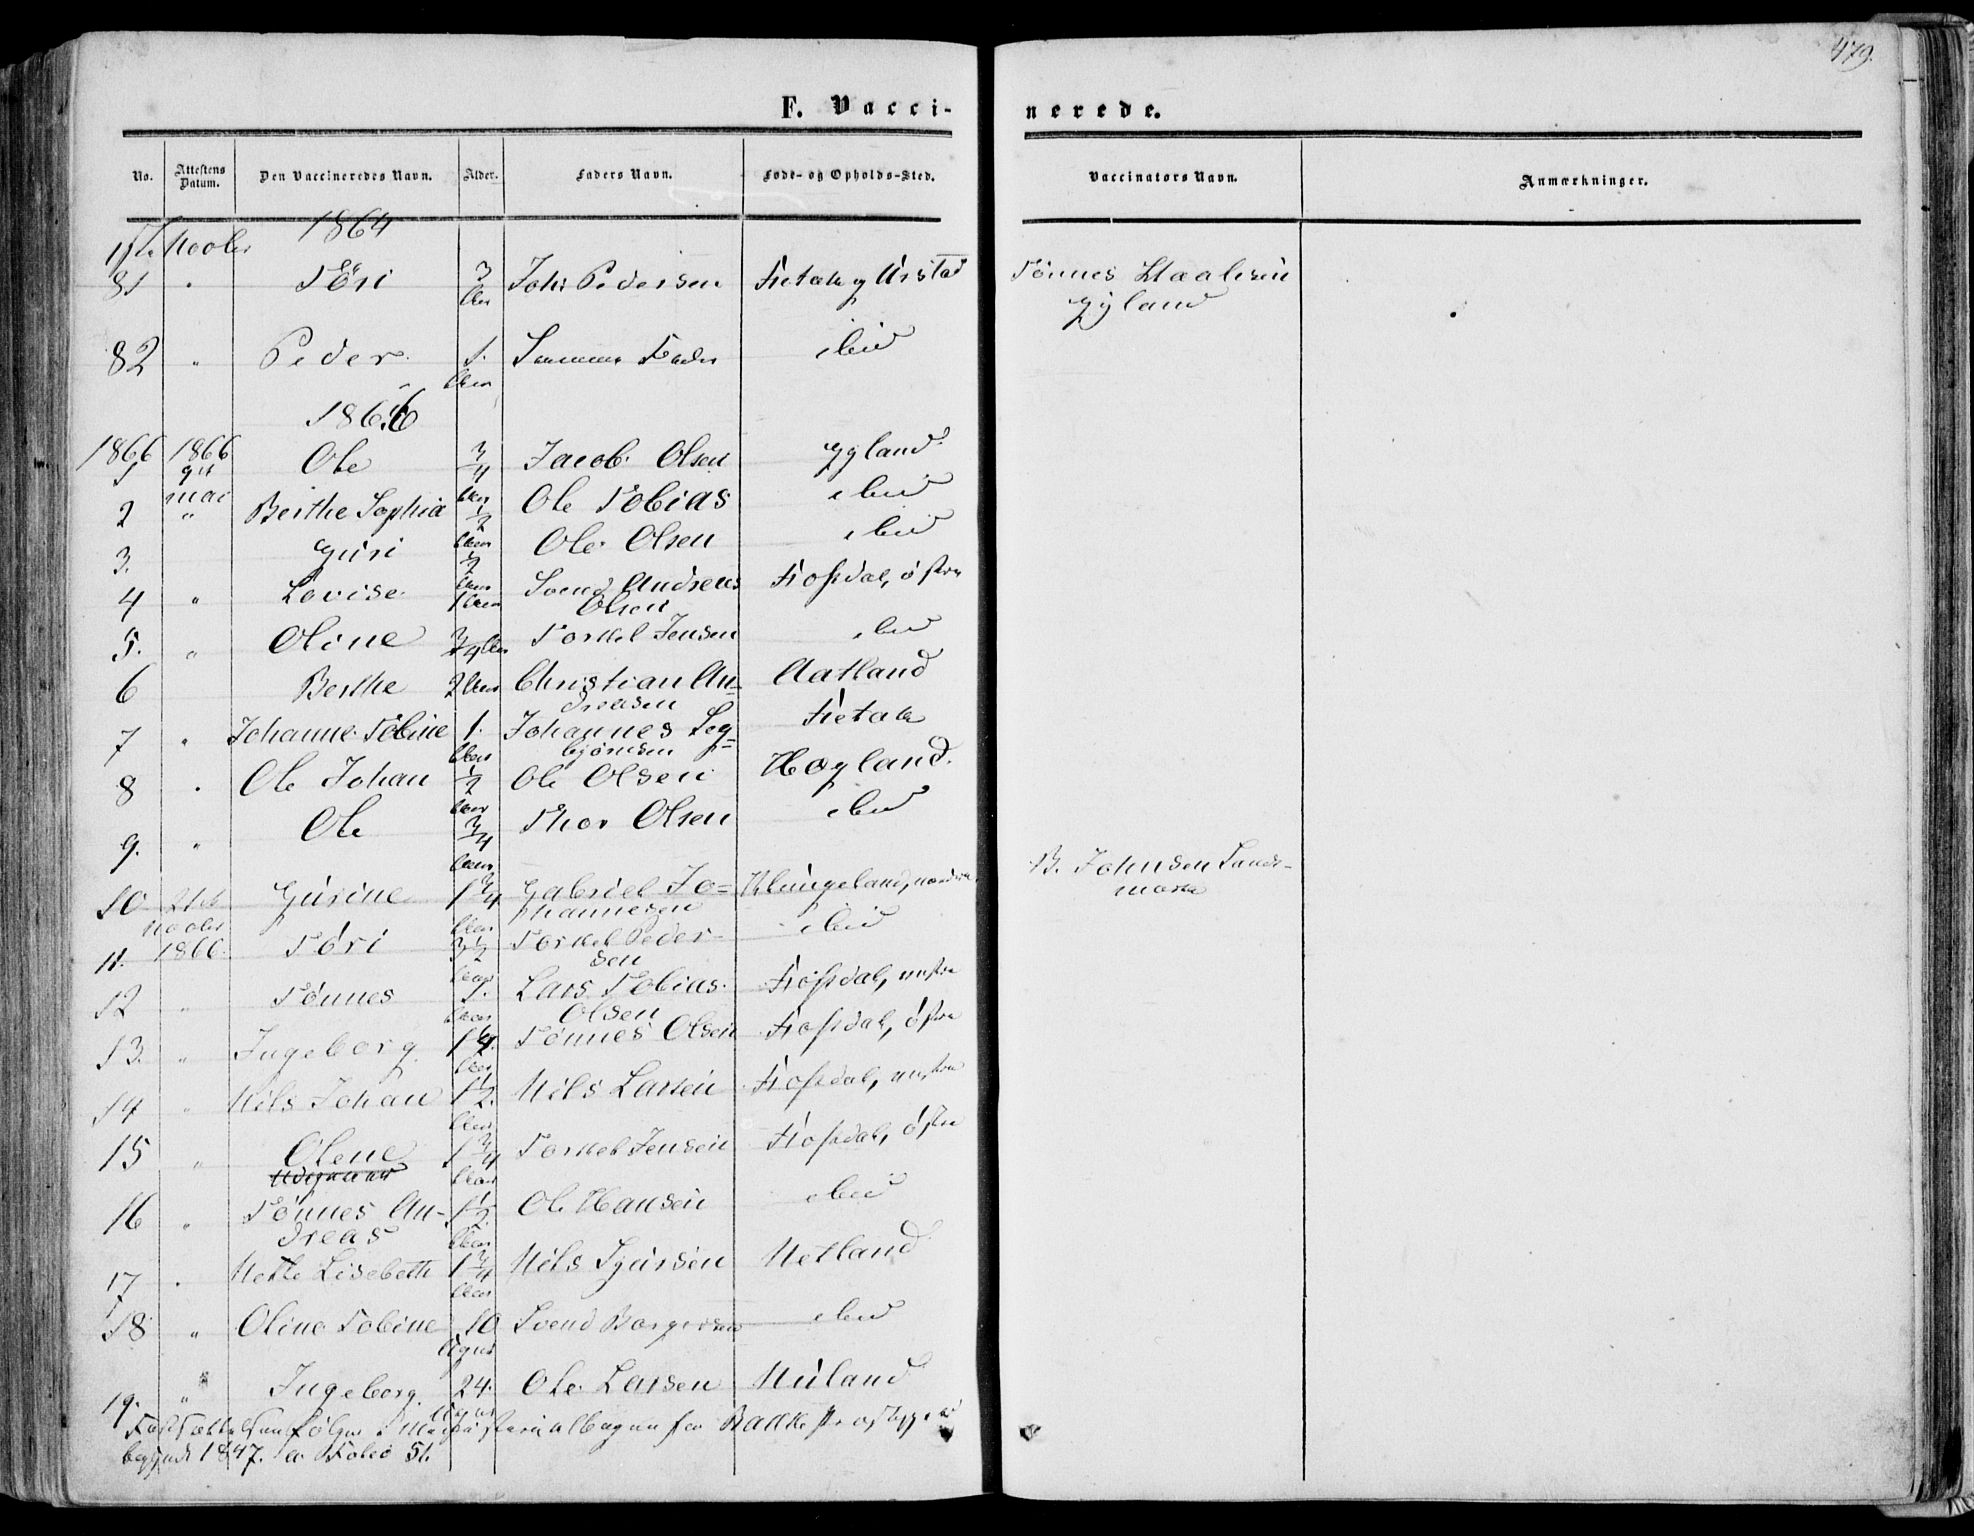 479.
F. Vacci-
nerede.
No. Attestens Datum. Den Vaccineredes Navn. Alder. Faders Navn. Føde- og Opholds-Sted. Vaccinators Navn. Anmærkninger.
1864
81 " Töri 3 Aar John Pedersen Fietak Tönnes
Gyland
82 " Peder 1. Aar Samme Fader ibid
1866
1866 1866
1 9de mai Ole 3/4 Aar Jacob Olsen Gyland
2 " Berthe Sophia 1/2 Aar Ole Tobias ibid
3. Guri 1/2 Aar Ole Olsen ibid
4 " Lovise 1 Aar Svend Andreas Olsen Fiosdal, östre
5. " Oline 3/4 Aar Torkel Jensen ibid
6 Berthe 2 Aar Christian An-
dreasen Aatland
7 " Johanne Tobine 1. Aar Johannes Seg-
bjørnsen Fietak
8 " Ole Johan 1/2 Aar Ole Olsen Högland.
9. " Ole 3/4 Aar Thor Olsen ibid
10 21de Gurine 1 3/4 Aar Gabriel Jo-
hannesen Klungeland, nordre B. Johnsen Lands-
mark
11. 1866. Töri 3 1/2 Aar Torkel Peder-
sen ibid
12 " Tönnes 1. Aar Lars Tobias
Olsen Fiosdal,
13. " Ingeborg Aar Tönnes Olsen Fiosdal, östre
14 " Nils Johan 1 1/2 Aar Nils Larsen Fiosdal,
15 " Olene 1 3/4 Aar Torkel Jensen Fiosdal, östre
16 " Tönnes An-
dreas 1 1/2 Aar Ole Hansen ibid
17 " Mette Lisebeth 1 3/4 Aar Nils Sjursen Netland
18 " Oline Tobine 10 Uger Svend Borgersen ibid
19. " Ingeborg 24. Uger Ole Larsen Nuland
Fortsættelsen følger i Ministerialbogen for Bakke
begyndt 1847. a Folio 51.